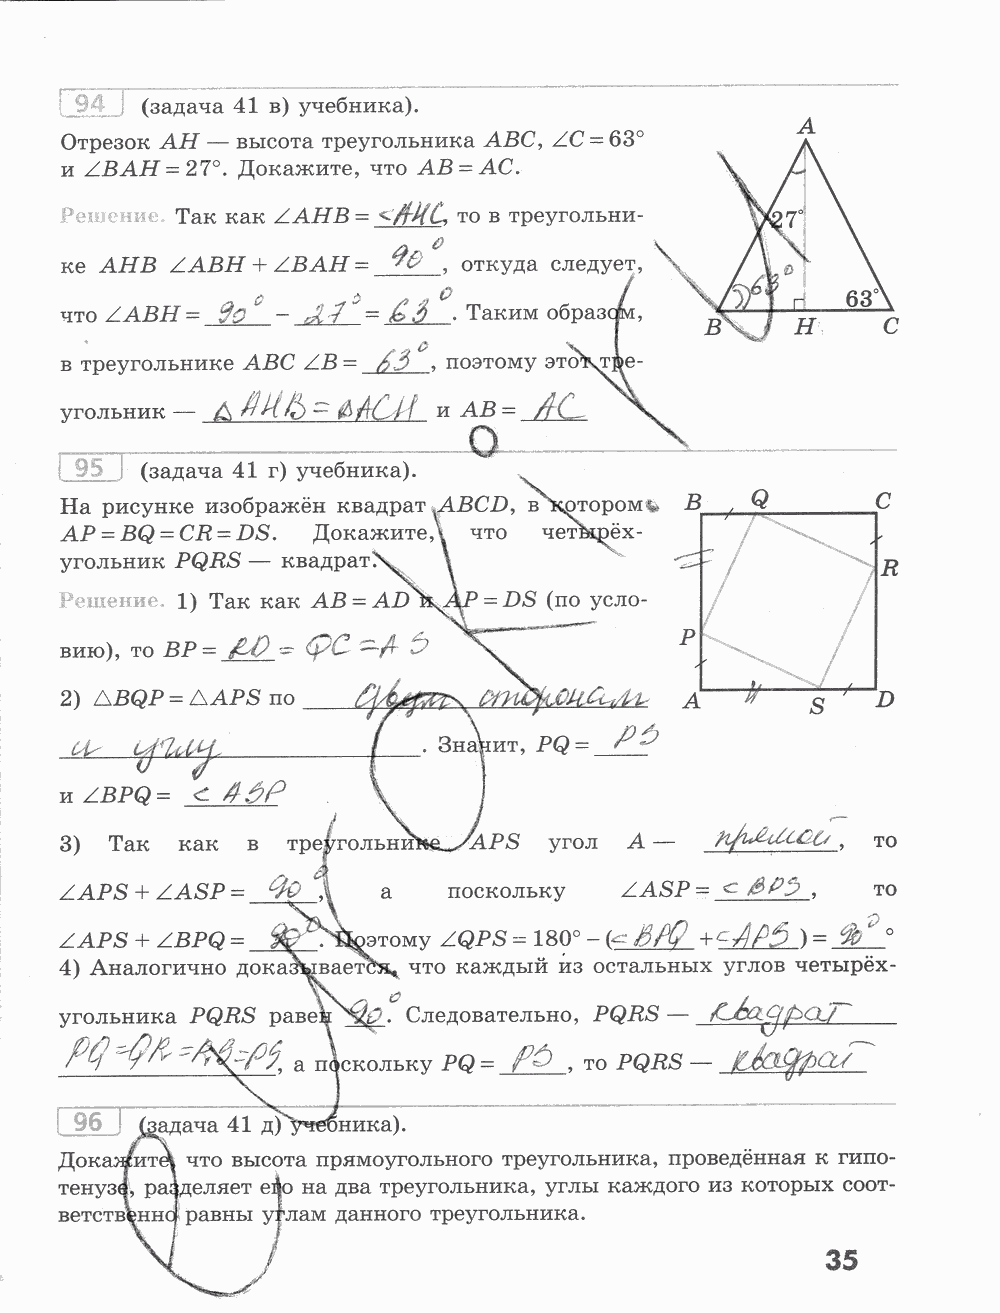 94 (задача 41 в) учебника).
Отрезок AH — высота треугольника ABC, ∠C = 63°
и ∠BAH = 27°. Докажите, что AB = AC.
Решение. Так как ∠AHB = <AHC, то в треугольни-
ке AHB ∠ABH + ∠BAH = 90°, откуда следует,
что ∠ABH = 90° − 27° = 63°. Таким образом,
в треугольнике ABC ∠B = 63°, поэтому этот тре-
угольник — △AHB = △ACH и AB = AC
A
27°
63°
63°
B H C
95 (задача 41 г) учебника).
На рисунке изображён квадрат ABCD, в котором
AP = BQ = CR = DS. Докажите, что четырёх-
угольник PQRS — квадрат.
Решение. 1) Так как AB = AD и AP = DS (по усло-
вию), то BP = RD = QC = AS
2) △BQP = △APS по двум сторонам
и углу. Значит, PQ = PS
и ∠BPQ = < ASP
B Q C
R
P
A S D
3) Так как в треугольнике APS угол A — прямой, то
∠APS + ∠ASP = 90°, а поскольку ∠ASP = < BPS, то
∠APS + ∠BPQ = 90°. Поэтому ∠QPS = 180° − (<BPQ + <APS) = 90° °
4) Аналогично доказывается, что каждый из остальных углов четырёх-
угольника PQRS равен 90°. Следовательно, PQRS — квадрат
PQ = QR = RS = PS, а поскольку PQ = PS, то PQRS — квадрат
96 (задача 41 д) учебника).
Докажите, что высота прямоугольного треугольника, проведённая к гипо-
тенузе, разделяет его на два треугольника, углы каждого из которых соот-
ветственно равны углам данного треугольника.
35